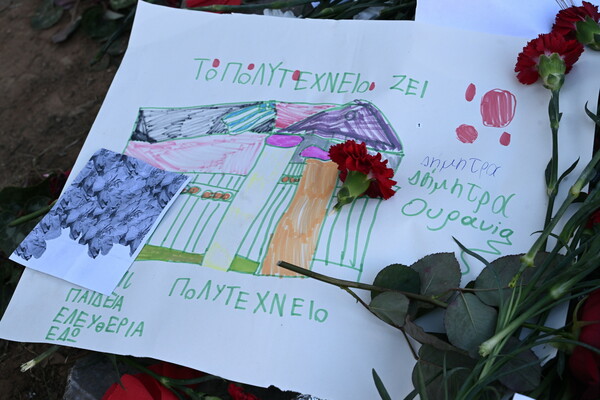 ΤΟ ΠΟΛΥΤΕΧΝΕΙΟ ΖΕΙ
ΔΗΜΗΤΡΑ
ΔΗΜΗΤΡΑ
Ουρανια
ΠΟΛΥΤΕΧΝΕΙΟ
ΠΑΙΔΕΙΑ
ΕΛΕΥΘΕΡΙΑ
ΕΔΩ